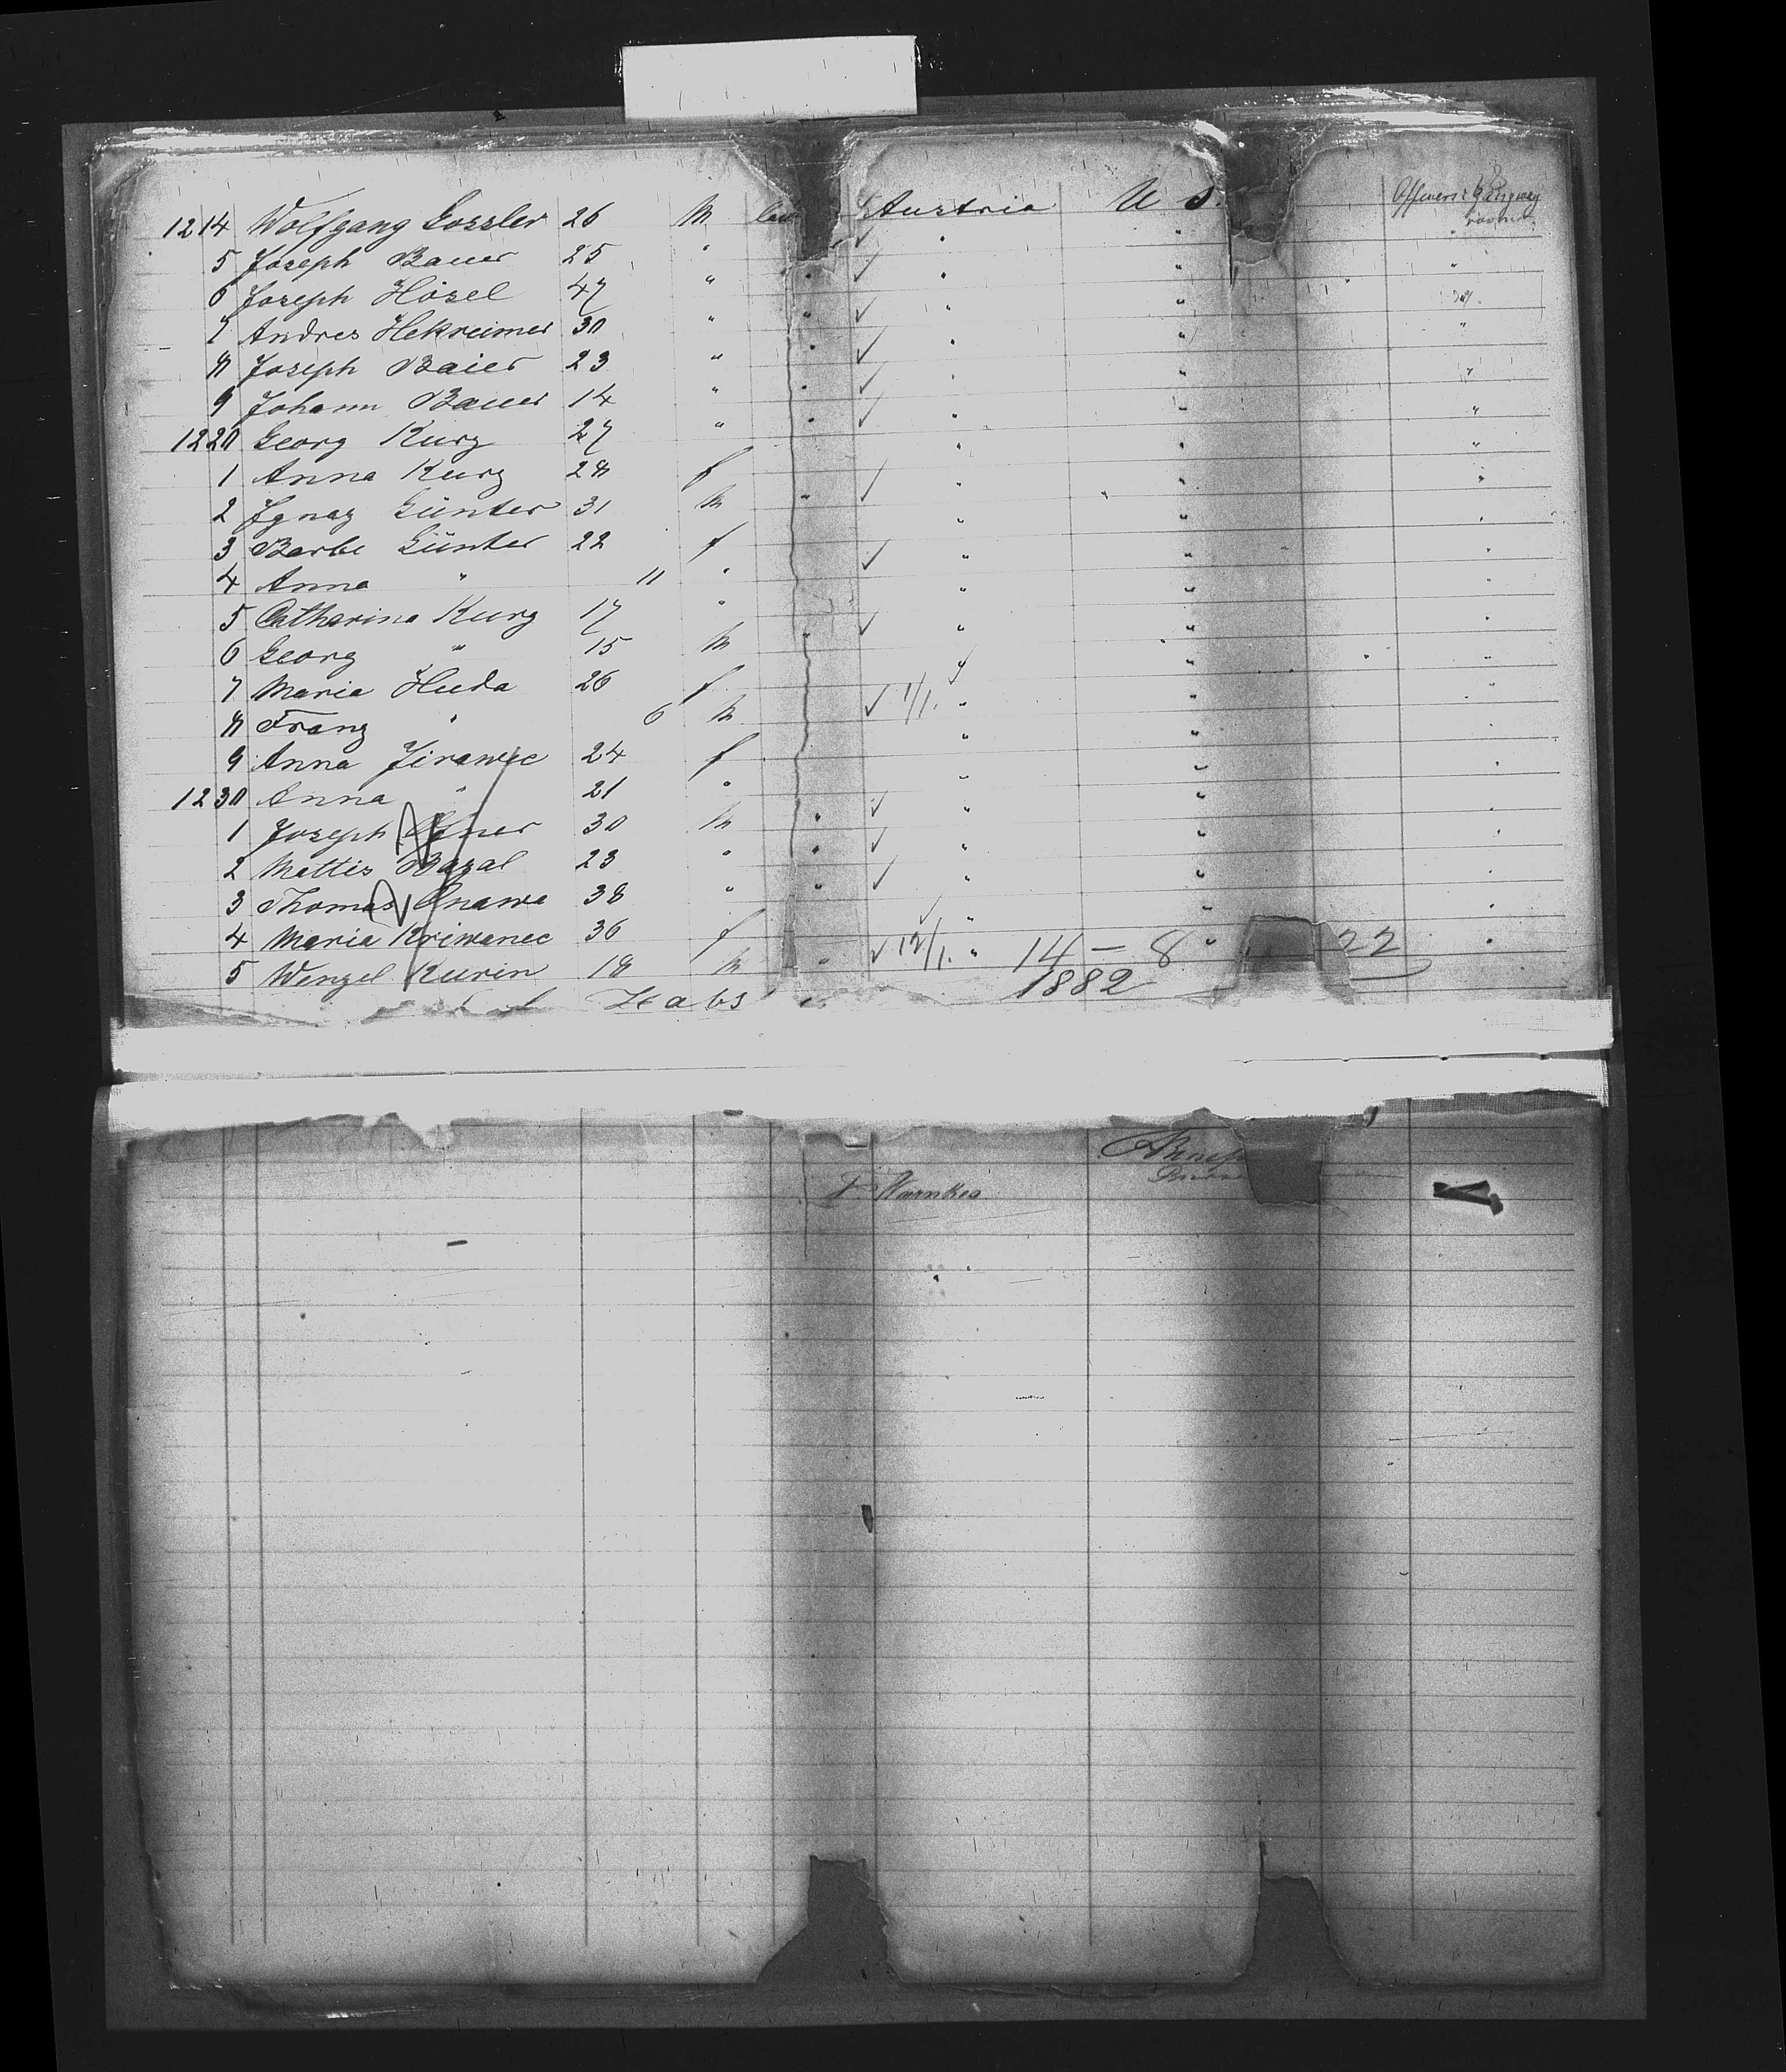 1214 Wolfgang Gossler 26 M Austria U S.
5 Joseph Bauer 25 " " " "
6 Joseph Hösel 47 " " " "
7 Andres Hekreimer 30 " " " "
8 Joseph Baier 23 " " " "
9 Johann Bauer 14 " " " "
1220 Georg Kurz 27 " " " "
1 Anna Kurz 28 f " " "
2 Ignaz Günter 31 M " " " "
3 Barbe Günter 22 f " " "
4 Anna " 11 " " " "
5 Catharina Kurz 17 " " " "
6 Georg " 15 M " " " "
7 Maria Huda 26 f " "
8 Franz " 6 M 1/1. " " "
9 Anna Jirawec 24 f " " "
1230 Anna " 21 " " " "
1 Joseph 30 M " " " "
2 Mattis Bazal 23 " " " " "
3 Thomas 38 " " " " "
4 Maria Kriwanec 36 f " " "
5 Wenzel Kurin 18 M " 12/1. " 14 — 8 " 22 "
1882